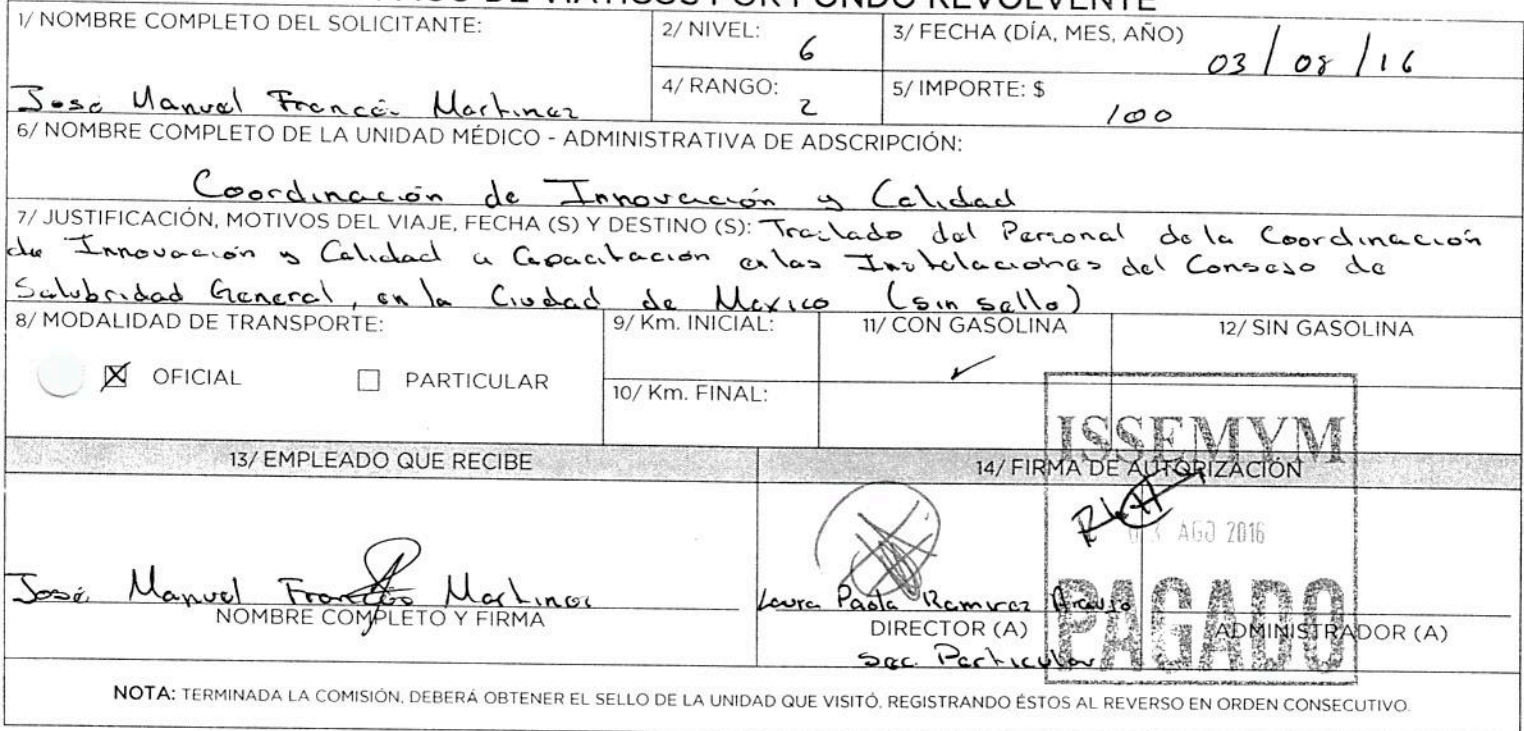 PAGO DE VIÁTICOS POR FONDO REVOLVENTE
1/ NOMBRE COMPLETO DEL SOLICITANTE:
José Manuel Francés Martinez
2/ NIVEL: 6
3/ FECHA (DÍA, MES, AÑO) 03/08/16
4/ RANGO: 2
5/ IMPORTE: $ 100
6/ NOMBRE COMPLETO DE LA UNIDAD MÉDICO - ADMINISTRATIVA DE ADSCRIPCIÓN:
Coordinación de Innovación y Calidad
7/ JUSTIFICACIÓN, MOTIVOS DEL VIAJE, FECHA (S) Y DESTINO (S): Traslado del Personal de la Coordinación
de Innovación y Calidad a Capacitación en las Instalaciones del Consejo de
Salubridad General, en la Ciudad de Mexico (sin sello)
8/ MODALIDAD DE TRANSPORTE:
OFICIAL PARTICULAR
9/ Km. INICIAL:
10/ Km. FINAL:
11/ CON GASOLINA
12/ SIN GASOLINA
ISSEMYM
13/ EMPLEADO QUE RECIBE
14/ FIRMA DE AUTORIZACIÓN
03 AGO 2016
PAGADO
José Manuel Francés Martinez
NOMBRE COMPLETO Y FIRMA
Laura Paola Ramirez Araujo
DIRECTOR (A)
Sec. Particular
ADMINISTRADOR (A)
NOTA: TERMINADA LA COMISIÓN, DEBERÁ OBTENER EL SELLO DE LA UNIDAD QUE VISITÓ. REGISTRANDO ÉSTOS AL REVERSO EN ORDEN CONSECUTIVO.